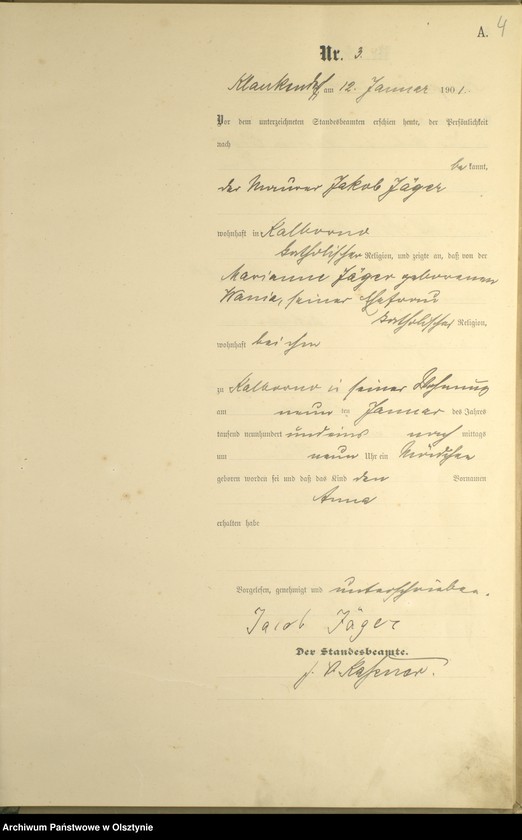 A. 4
Nr. 3.
Klaukendorf am 12. Januar 1901.
Vor dem unterzeichneten Standesbeamten erschien heute, der Persönlichkeit
nach
bekannt,
der Maurer Jakob Jäger
wohnhaft in Kalborno
katholischer Religion, und zeigte an, daß von der
Marianne Jäger geborenen
Wania, seiner Ehefrau
katholischer Religion,
wohnhaft bei ihm
zu Kalborno in seiner Wohnung
am neun ten Januar des Jahres
tausend neunhundert undeins nach mittags
um neun Uhr ein Mädchen
geboren worden sei und daß das Kind den Vornamen
Anna
erhalten habe
Vorgelesen, genehmigt und unterschrieben.
Jacob Jäger
Der Standesbeamte.
Archiwum Państwowe w Olsztynie